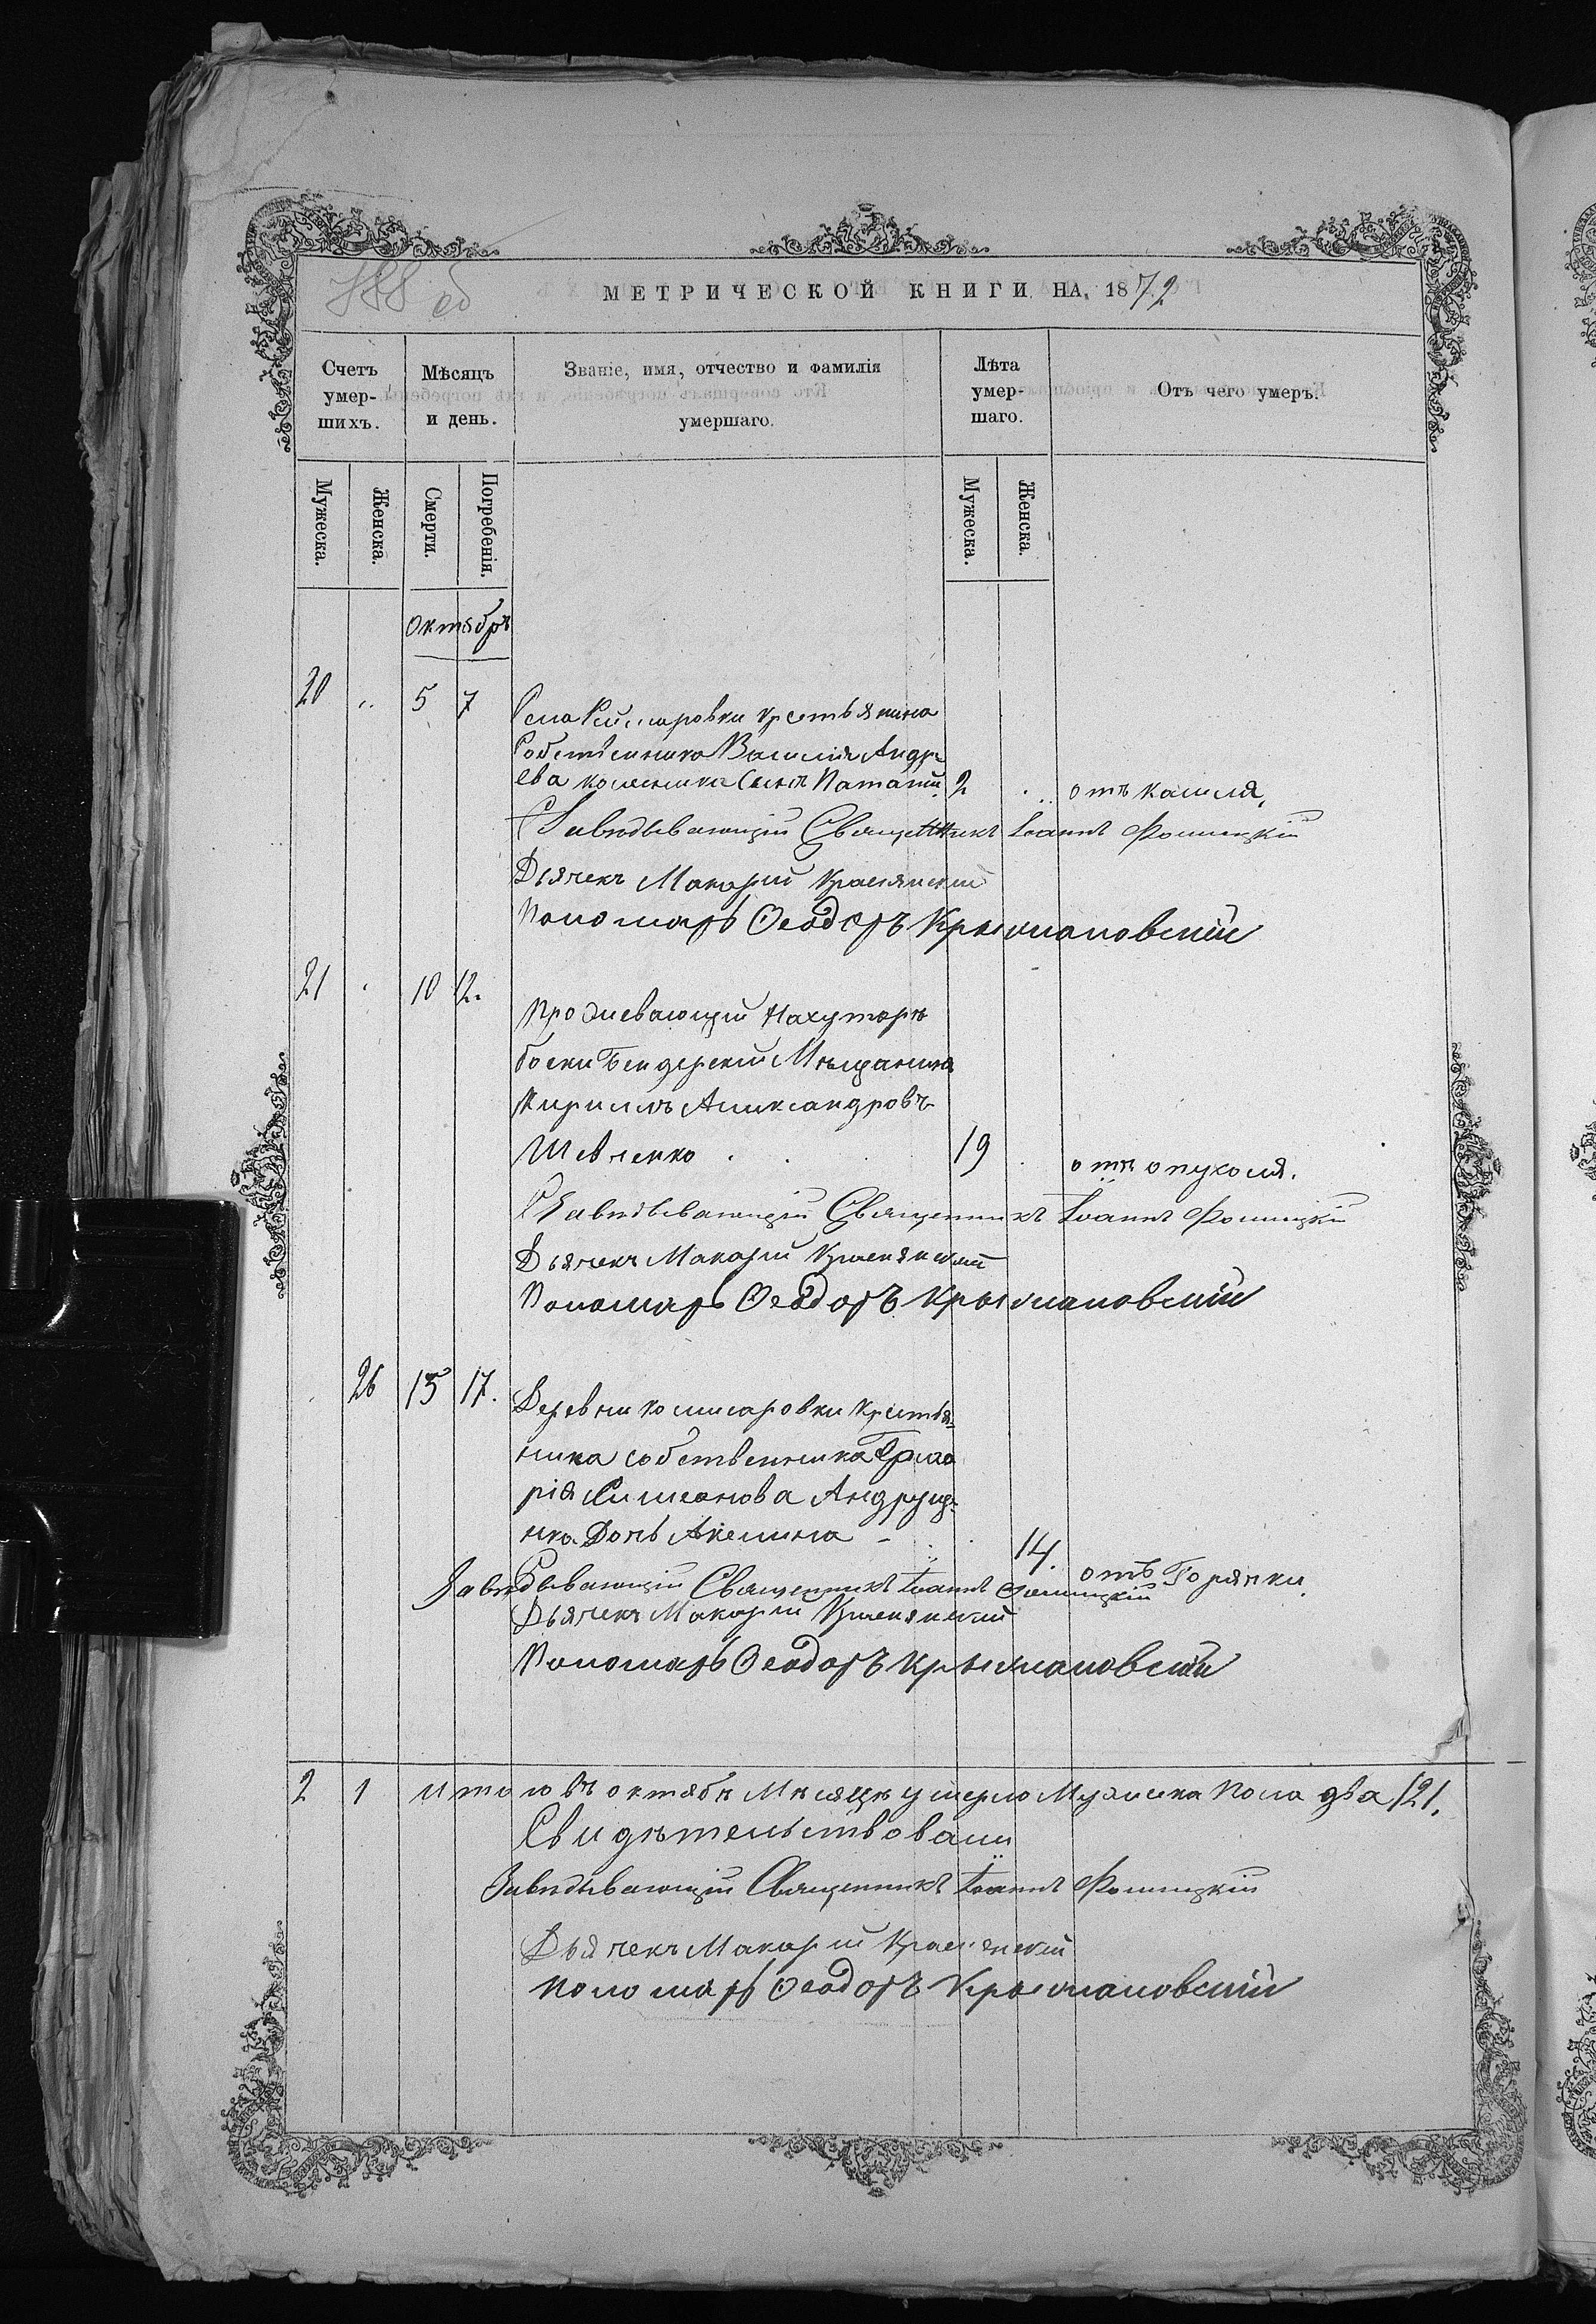 МЕТРИЧЕСКОЙ КНИГИ НА 1872
Счетъ умер-шихъ.
Мѣсяцъ и день.
Званіе, имя, отчество и фамилія умершаго.
Лѣта умер-шаго.
Отъ чего умеръ.
Мужеска. Женска. Смерти. Погребенія. Мужеска. Женска.
Октябрь
20 „ 5 7 Села крестьянина
Собственника Василія Андре
ева сынъ 2 отъ кашля.
Завѣдывающій Священникъ Іоаннъ Фомицкій
Дьячекъ Макарій
Пономарь Ѳеодоръ Крыжановскій
21 10 12. Проживающій на хуторѣ
Бендерскій Мѣщанинъ
Кириллъ Александровъ
Шевченко 19 отъ опухоля.
Завѣдывающій Священникъ Іоаннъ Фомицкій
Дьячекъ Макарій
Пономарь Ѳеодоръ Крыжановскій
26 15 17. Деревни Комисаровки Крестья
нина собственника Григо
рія Симеонова Андруще
нка Дочь Акелина 14. отъ Горячки.
Завѣдывающій Священникъ Іоаннъ Фомицкій
Дьячекъ Макарій
Пономарь Ѳеодоръ Крыжановскій
2 1 Итого въ октябѣ Мѣсяцѣ умерло Мужеска Пола два /2/.
Свидѣтельствовали
Завѣдывающій Священникъ Іоаннъ Фомицкій
Дьячекъ Макарій
Пономарь Ѳеодоръ Крыжановскій